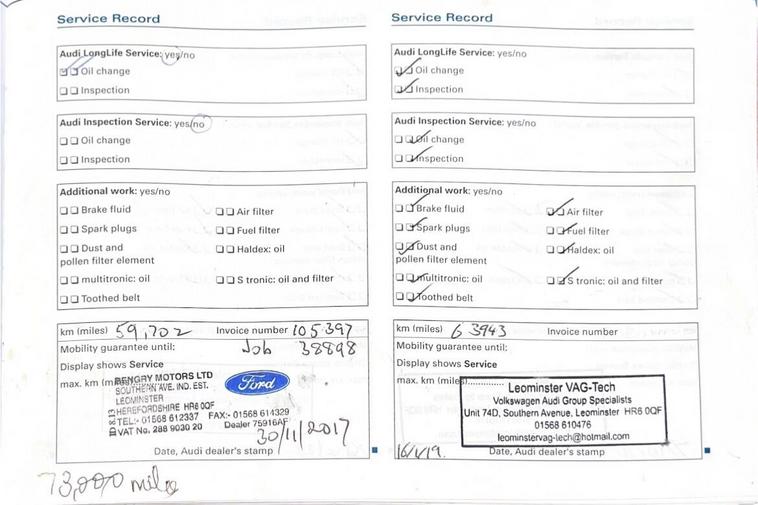 Service Record
Audi LongLife Service: yes/no
Oil change
Inspection
Audi Inspection Service: yes/no
Oil change
Inspection
Additional work: yes/no
Brake fluid
Air filter
Spark plugs
Fuel filter
Dust and
pollen filter element
Haldex: oil
multitronic: oil
S tronic: oil and filter
Toothed belt
km (miles) 59,702 Invoice number 105397
Mobility guarantee until: Job 38898
Display shows Service
max. km (m
BENGRY MOTORS LTD
SOUTHERN AVE. IND. EST.
LEOMINSTER
HEREFORDSHIRE HR6 0QF
TEL:- 01568 612337 FAX:- 01568 614329
VAT No. 288 9030 20 Dealer 75916AF
Ford
30/11/2017
Date, Audi dealer's stamp
73,000 miles
Service Record
Audi LongLife Service: yes/no
Oil change
Inspection
Audi Inspection Service: yes/no
Oil change
Inspection
Additional work: yes/no
Brake fluid
Air filter
Spark plugs
Fuel filter
Dust and
pollen filter element
Haldex: oil
multitronic: oil
S tronic: oil and filter
Toothed belt
km (miles) 63943 Invoice number
Mobility guarantee until:
Display shows Service
max. km (miles)
Leominster VAG-Tech
Volkswagen Audi Group Specialists
Unit 74D, Southern Avenue, Leominster HR6 0QF
01568 610476
leominstervag-tech@hotmail.com
16/1/19.
Date, Audi dealer's stamp